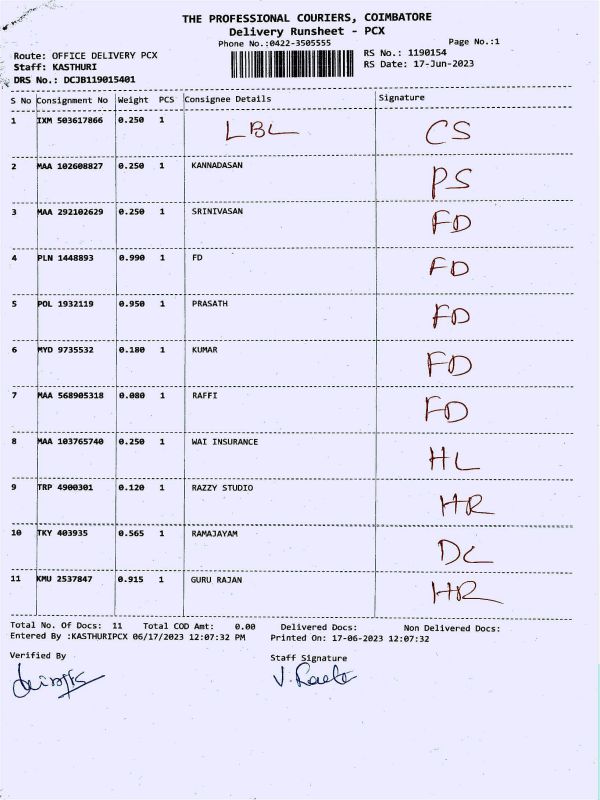 THE PROFESSIONAL COURIERS, COIMBATORE
Delivery Runsheet - PCX
Phone No.:0422-3505555 Page No.:1
Route: OFFICE DELIVERY PCX RS No.: 1190154
Staff: KASTHURI RS Date: 17-Jun-2023
DRS No.: DCJB119015401
S No Consignment No Weight PCS Consignee Details Signature
1 IXM 503617866 0.250 1 LBL CS
2 MAA 102608827 0.250 1 KANNADASAN PS
3 MAA 292102629 0.250 1 SRINIVASAN FD
4 PLN 1448893 0.990 1 FD FD
5 POL 1932119 0.950 1 PRASATH FD
6 MYD 9735532 0.180 1 KUMAR FD
7 MAA 568905318 0.080 1 RAFFI FD
8 MAA 103765740 0.250 1 WAI INSURANCE HL
9 TRP 4900301 0.120 1 RAZZY STUDIO HR
10 TKY 403935 0.565 1 RAMAJAYAM DC
11 KMU 2537847 0.915 1 GURU RAJAN HR
Total No. Of Docs: 11 Total COD Amt: 0.00 Delivered Docs: Non Delivered Docs:
Entered By :KASTHURIPCX 06/17/2023 12:07:32 PM Printed On: 17-06-2023 12:07:32
Verified By Staff Signature